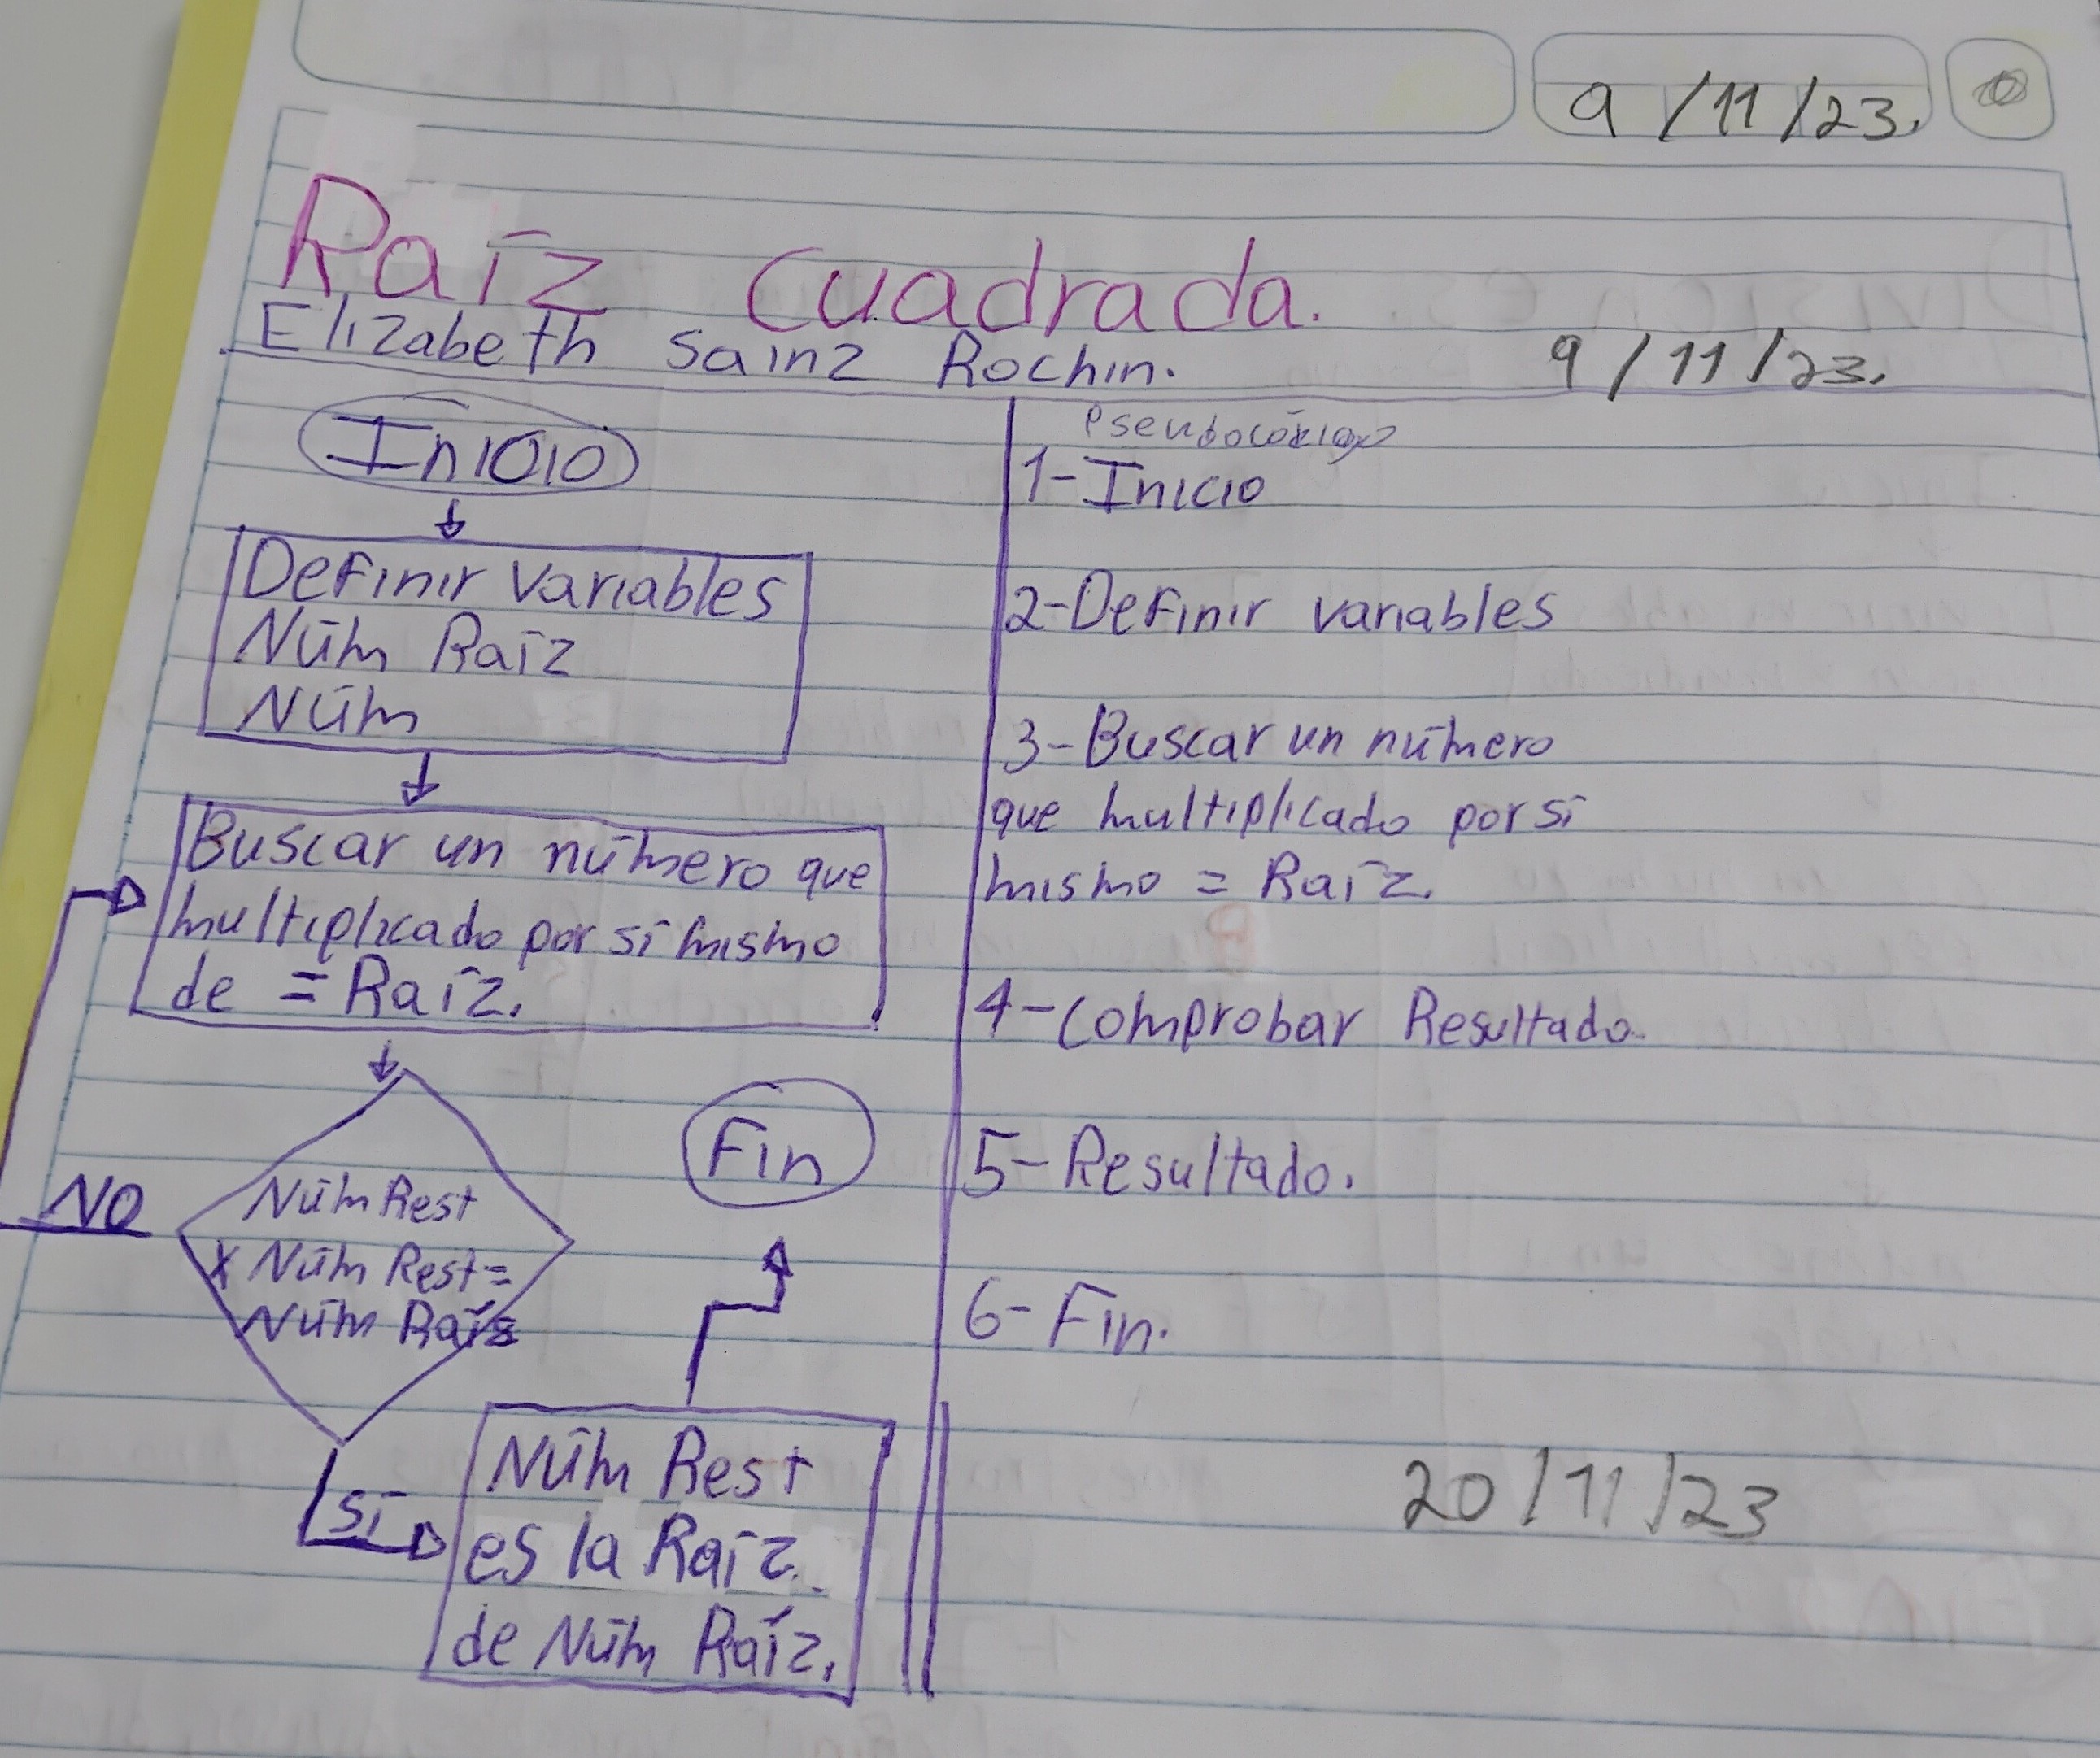 9/11/23.
Raíz cuadrada.
Elizabeth Sainz Rochin. 9/11/23.
Inicio
Definir Variables
Núm Raíz
Núm
Buscar un número que
multiplicado por sí mismo
de = Raíz.
Núm Rest
x Núm Rest=
Núm Raíz
NO
sí
Núm Rest
es la Raíz
de Núm Raíz.
Fin
Pseudocódigo
1-Inicio
2-Definir variables
3-Buscar un número
que multiplicado por sí
mismo = Raíz.
4-Comprobar Resultado.
5-Resultado.
6-Fin.
20/11/23